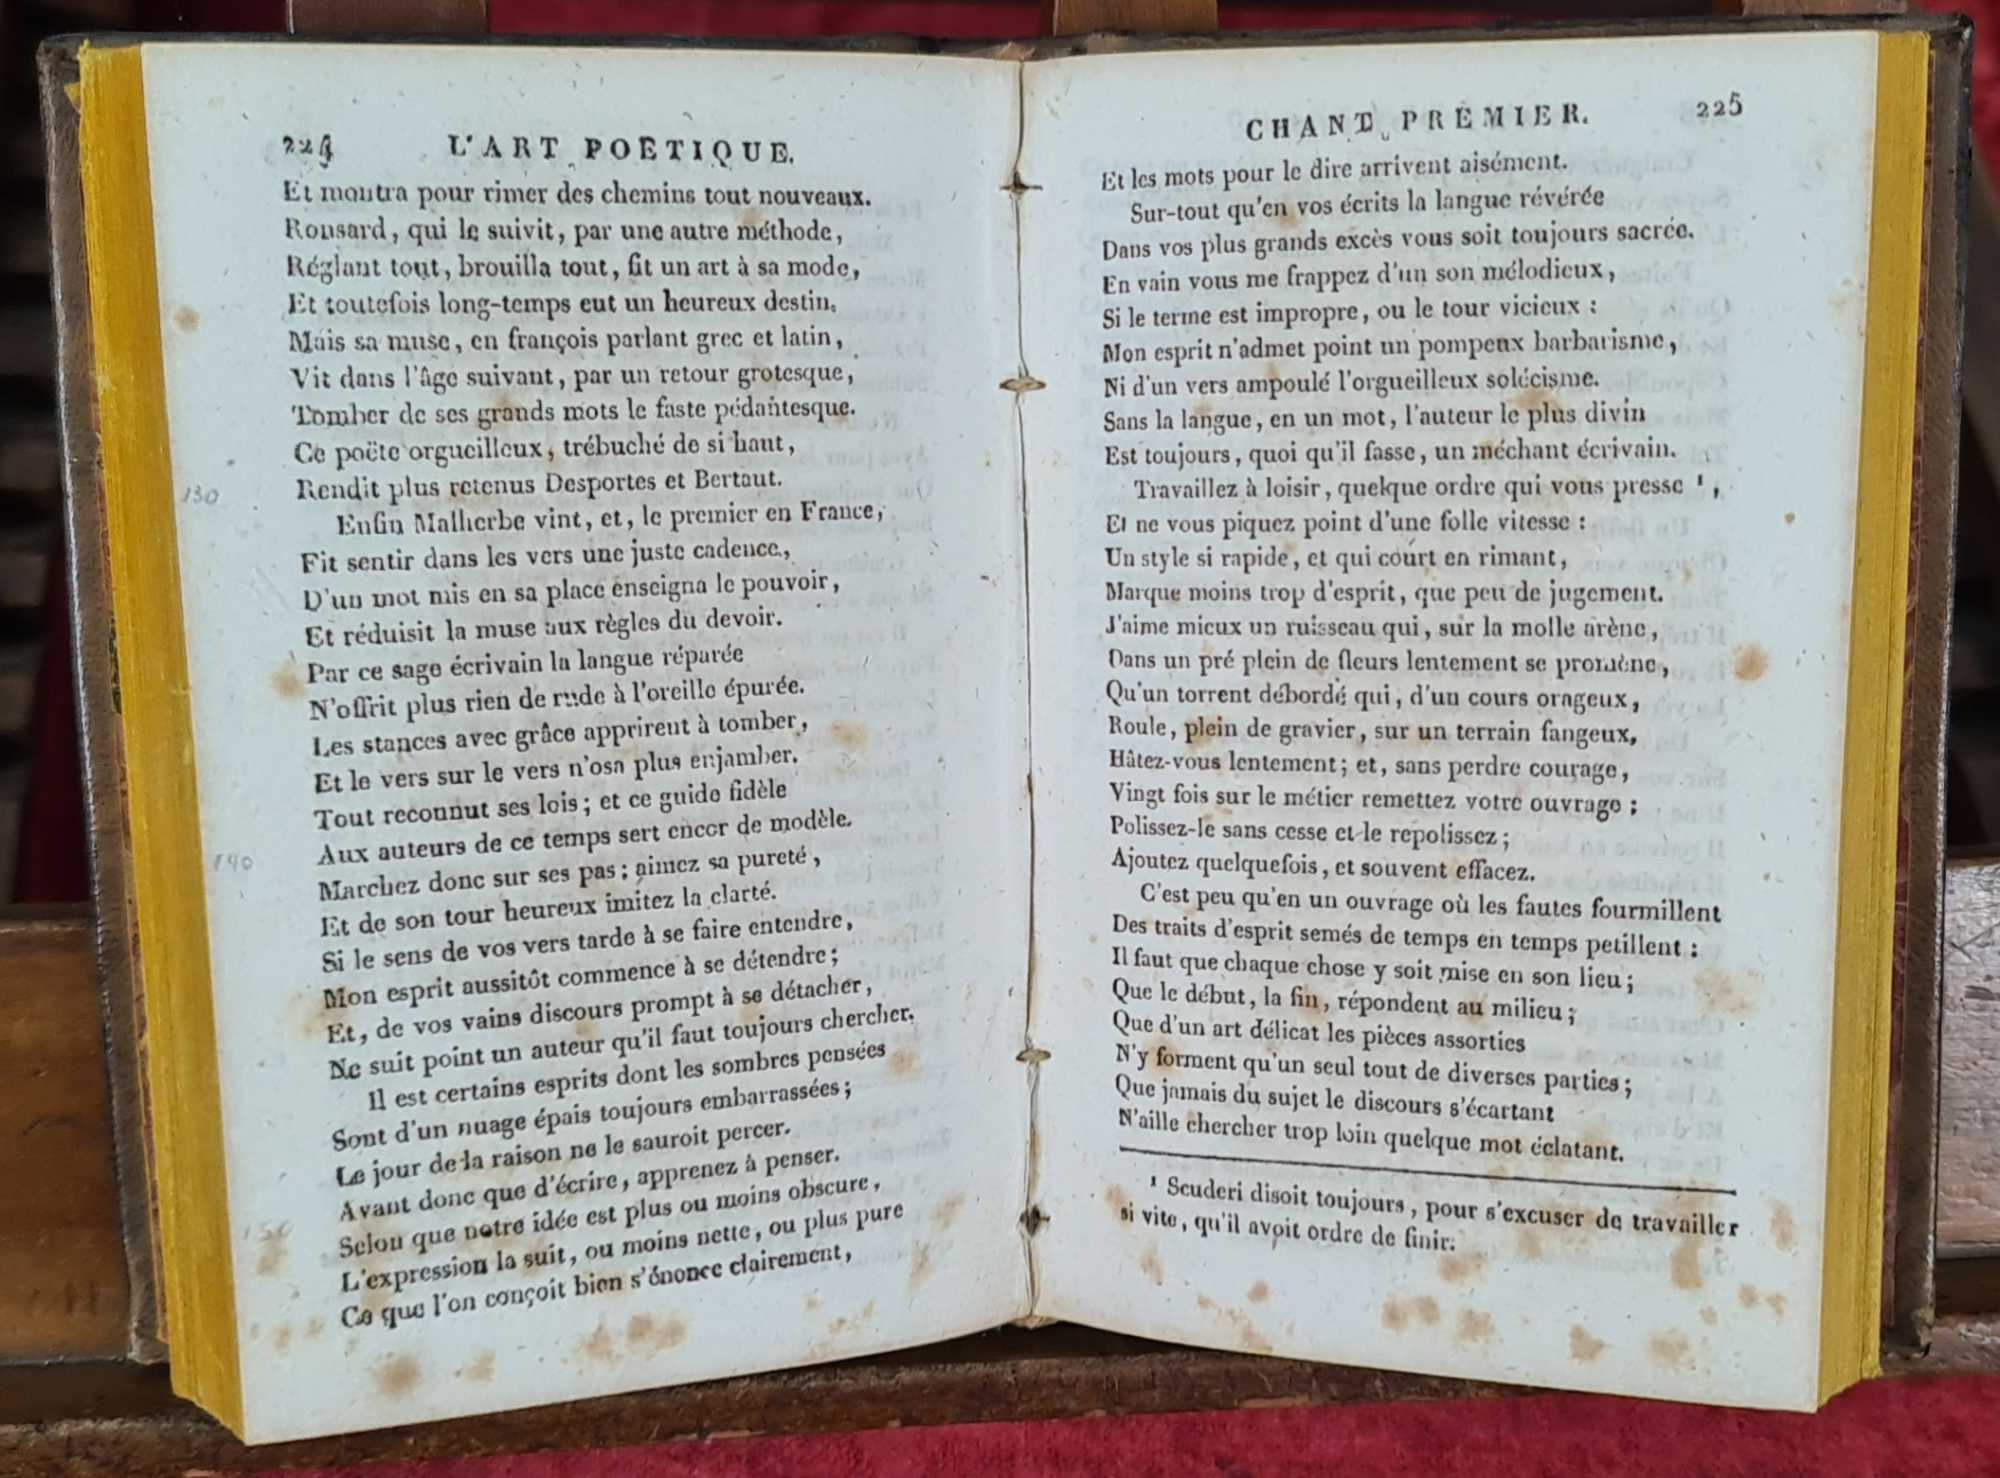 224 L'ART POËTIQUE.
Et montra pour rimer des chemins tout nouveaux.
Ronsard, qui le suivit, par une autre méthode,
Réglant tout, brouilla tout, fit un art à sa mode,
Et toutefois long-temps eut un heureux destin.
Mais sa muse, en françois parlant grec et latin,
Vit dans l'âge suivant, par un retour grotesque,
Tomber de ses grands mots le faste pédantesque.
Ce poëte orgueilleux, trébuché de si haut,
130 Rendit plus retenus Desportes et Bertaut.
Enfin Malherbe vint, et, le premier en France,
Fit sentir dans les vers une juste cadence,
D'un mot mis en sa place enseigna le pouvoir,
Et réduisit la muse aux règles du devoir.
Par ce sage écrivain la langue réparée
N'offrit plus rien de rude à l'oreille épurée.
Les stances avec grâce apprirent à tomber,
Et le vers sur le vers n'osa plus enjamber.
Tout reconnut ses lois; et ce guide fidèle
Aux auteurs de ce temps sert encor de modèle.
140 Marchez donc sur ses pas; aimez sa pureté,
Et de son tour heureux imitez la clarté.
Si le sens de vos vers tarde à se faire entendre,
Mon esprit aussitôt commence à se détendre;
Et, de vos vains discours prompt à se détacher,
Ne suit point un auteur qu'il faut toujours chercher.
Il est certains esprits dont les sombres pensées
Sont d'un nuage épais toujours embarrassées;
Le jour de la raison ne le sauroit percer.
Avant donc que d'écrire, apprenez à penser.
150 Selon que notre idée est plus ou moins obscure,
L'expression la suit, ou moins nette, ou plus pure
Ce que l'on conçoit bien s'énonce clairement,
CHANT PREMIER. 225
Et les mots pour le dire arrivent aisément.
Sur-tout qu'en vos écrits la langue révérée
Dans vos plus grands excès vous soit toujours sacrée.
En vain vous me frappez d'un son mélodieux,
Si le terme est impropre, ou le tour vicieux :
Mon esprit n'admet point un pompeux barbarisme,
Ni d'un vers ampoulé l'orgueilleux solécisme.
Sans la langue, en un mot, l'auteur le plus divin
Est toujours, quoi qu'il fasse, un méchant écrivain.
Travaillez à loisir, quelque ordre qui vous presse ¹,
Et ne vous piquez point d'une folle vitesse :
Un style si rapide, et qui court en rimant,
Marque moins trop d'esprit, que peu de jugement.
J'aime mieux un ruisseau qui, sur la molle arène,
Dans un pré plein de fleurs lentement se promène,
Qu'un torrent débordé qui, d'un cours orageux,
Roule, plein de gravier, sur un terrain fangeux,
Hâtez-vous lentement; et, sans perdre courage,
Vingt fois sur le métier remettez votre ouvrage :
Polissez-le sans cesse et le repolissez;
Ajoutez quelquefois, et souvent effacez.
C'est peu qu'en un ouvrage où les fautes fourmillent
Des traits d'esprit semés de temps en temps petillent :
Il faut que chaque chose y soit mise en son lieu;
Que le début, la fin, répondent au milieu;
Que d'un art délicat les pièces assorties
N'y forment qu'un seul tout de diverses parties;
Que jamais du sujet le discours s'écartant
N'aille chercher trop loin quelque mot éclatant.
¹ Scuderi disoit toujours, pour s'excuser de travailler
si vite, qu'il avoit ordre de finir.